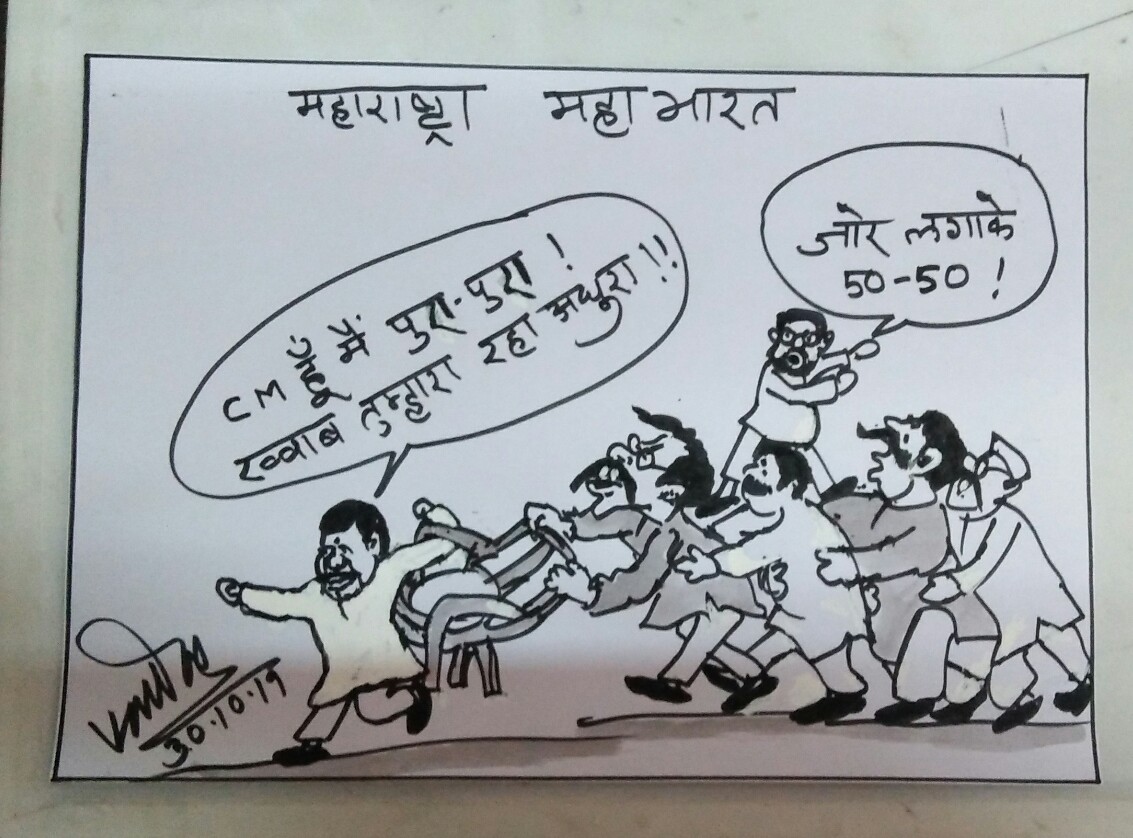 महाराष्ट्रा महाभारत
CM हूँ मैं पुरा-पुरा !
ख्वाब तुम्हारा रहा अधुरा !!
जोर लगाके
50-50 !
30.10.19